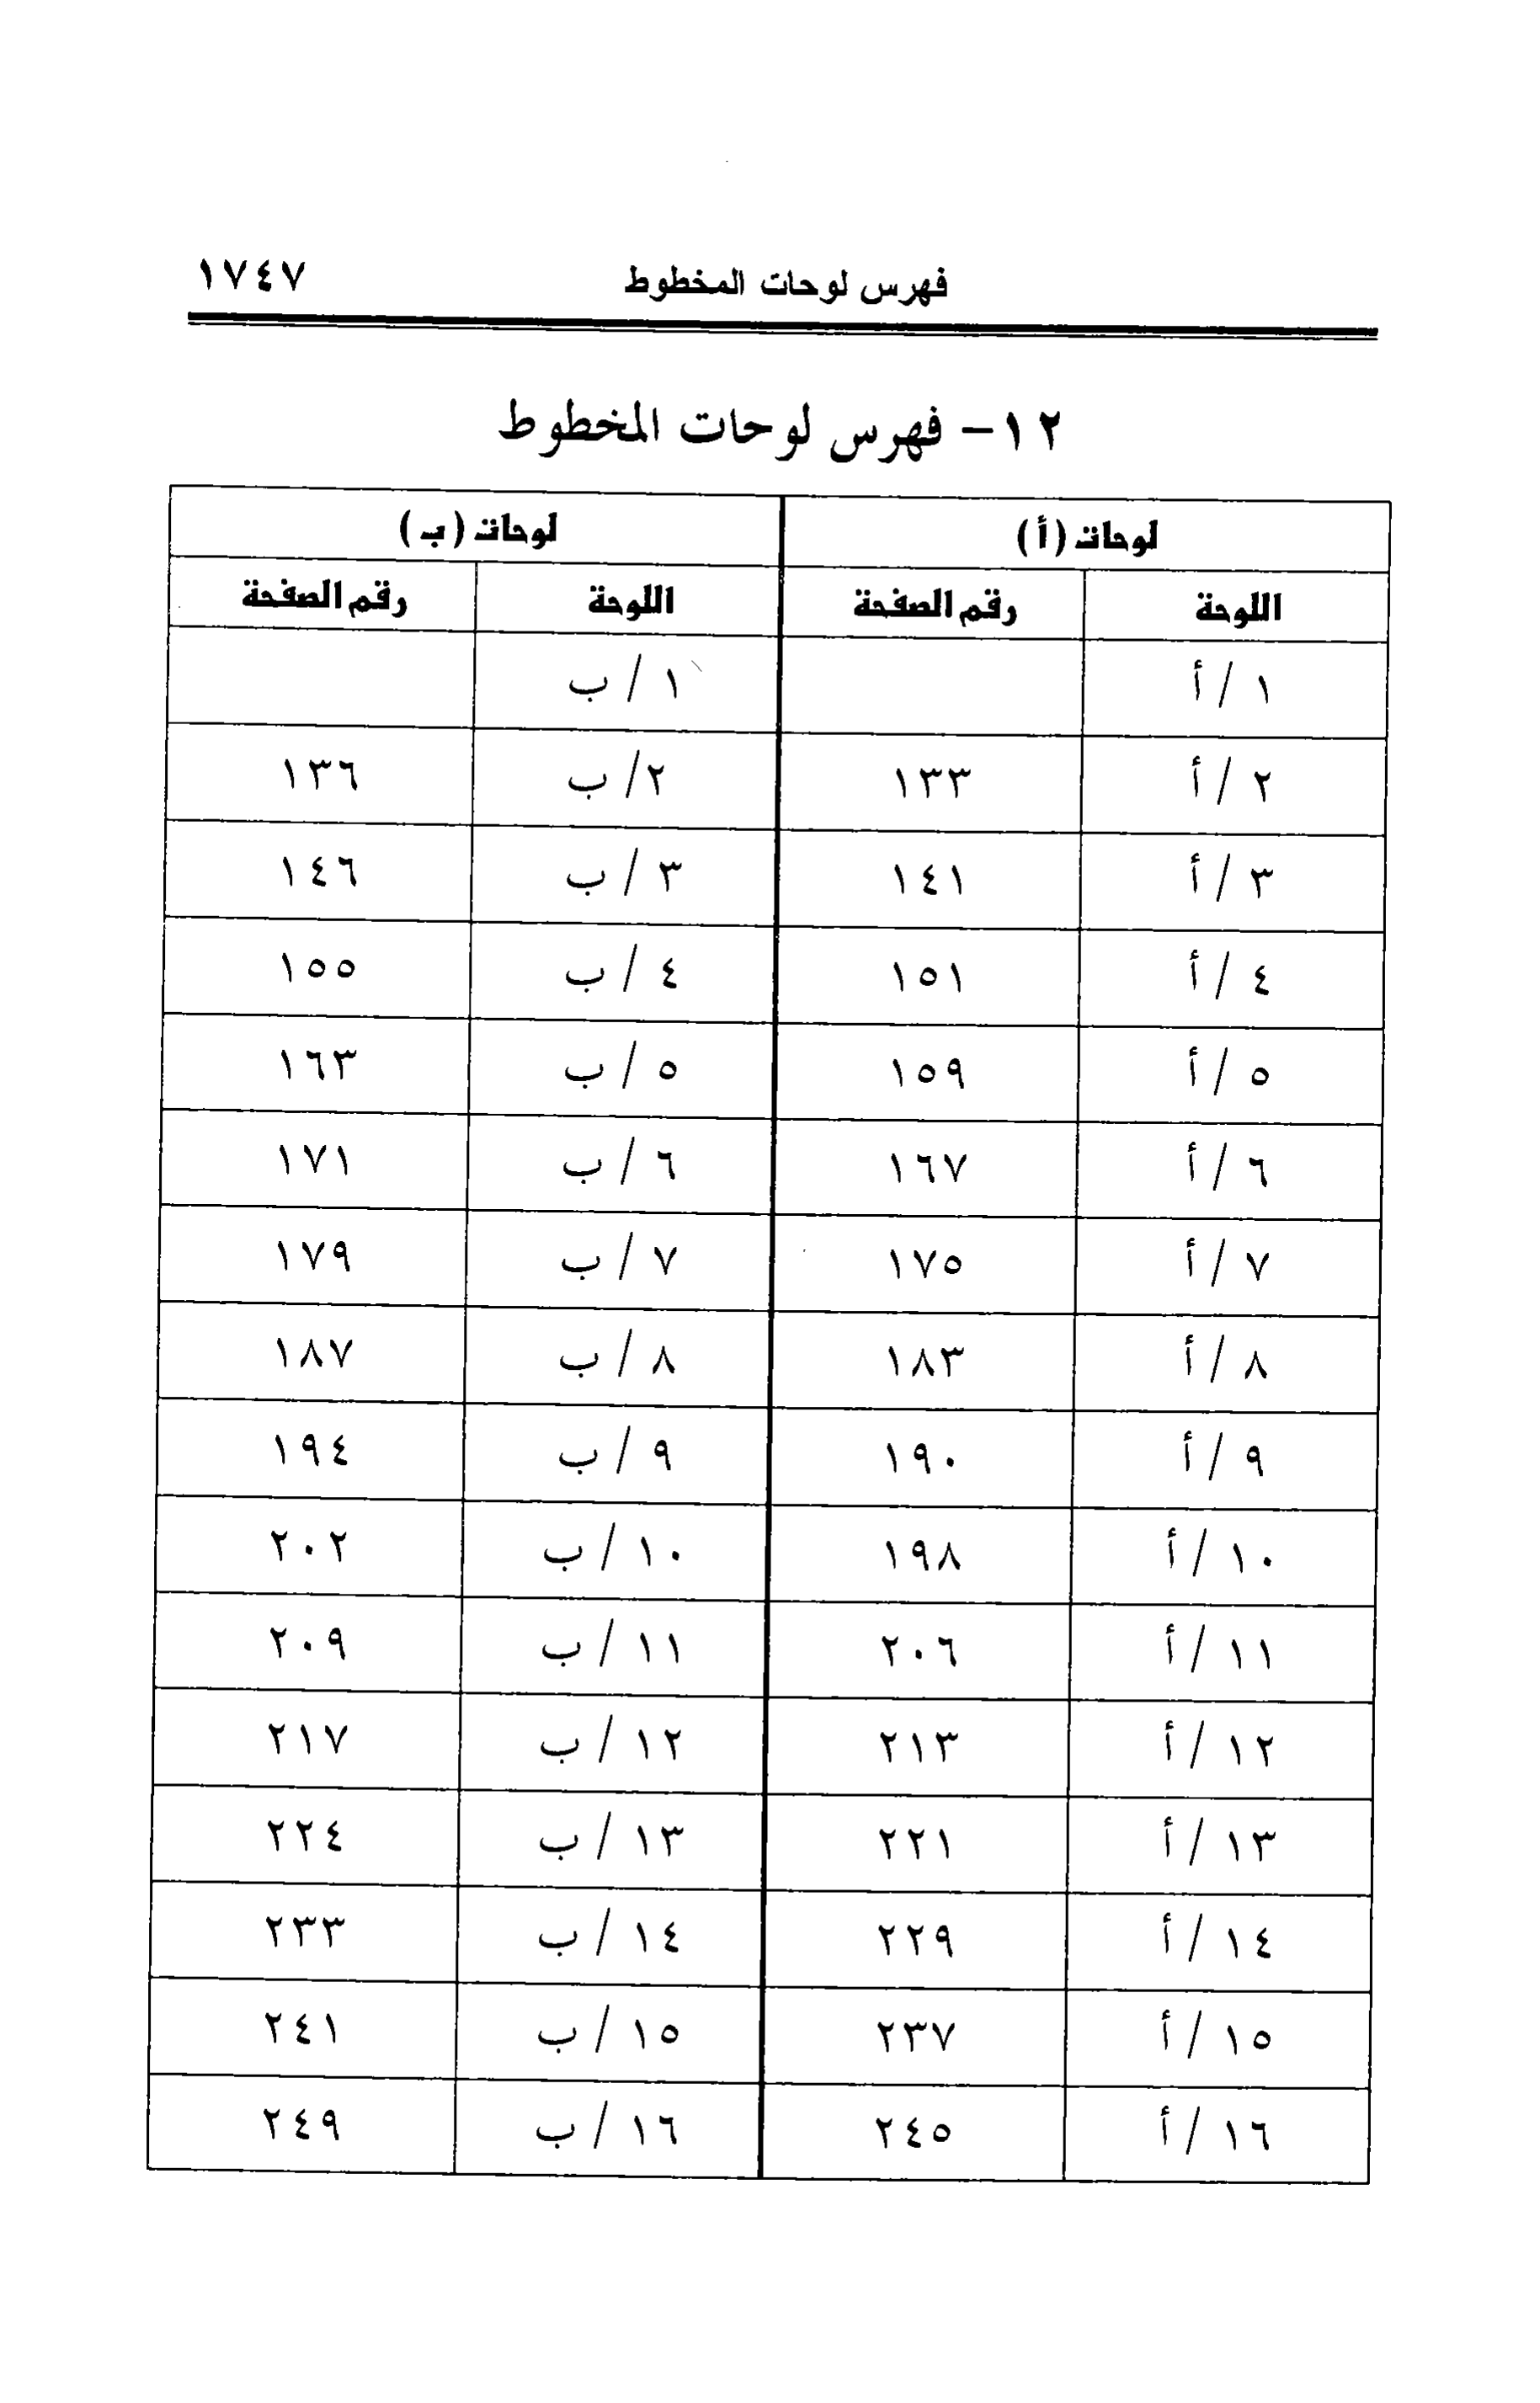 فهرس لوحات المخطوط ١٧٤٧
١٢- فهرس لوحات المخطوط
لوحات (أ) لوحات (ب)
اللوحة رقم الصفحة اللوحة رقم الصفحة
١ / أ ١ / ب
٢ / أ ١٣٣ ٢/ ب ١٣٦
٣ / أ ١٤١ ٣ / ب ١٤٦
٤ / أ ١٥١ ٤ / ب ١٥٥
٥ / أ ١٥٩ ٥ / ب ١٦٣
٦ / أ ١٦٧ ٦ / ب ١٧١
٧ / أ ١٧٥ ٧ / ب ١٧٩
٨ / أ ١٨٣ ٨ / ب ١٨٧
٩ / أ ١٩٠ ٩ / ب ١٩٤
١٠ / أ ١٩٨ ١٠ / ب ٢٠٢
١١ / أ ٢٠٦ ١١ / ب ٢٠٩
١٢ / أ ٢١٣ ١٢ / ب ٢١٧
١٣ / أ ٢٢١ ١٣ / ب ٢٢٤
١٤ / أ ٢٢٩ ١٤ / ب ٢٣٣
١٥ / أ ٢٣٧ ١٥ / ب ٢٤١
١٦ / أ ٢٤٥ ١٦ / ب ٢٤٩